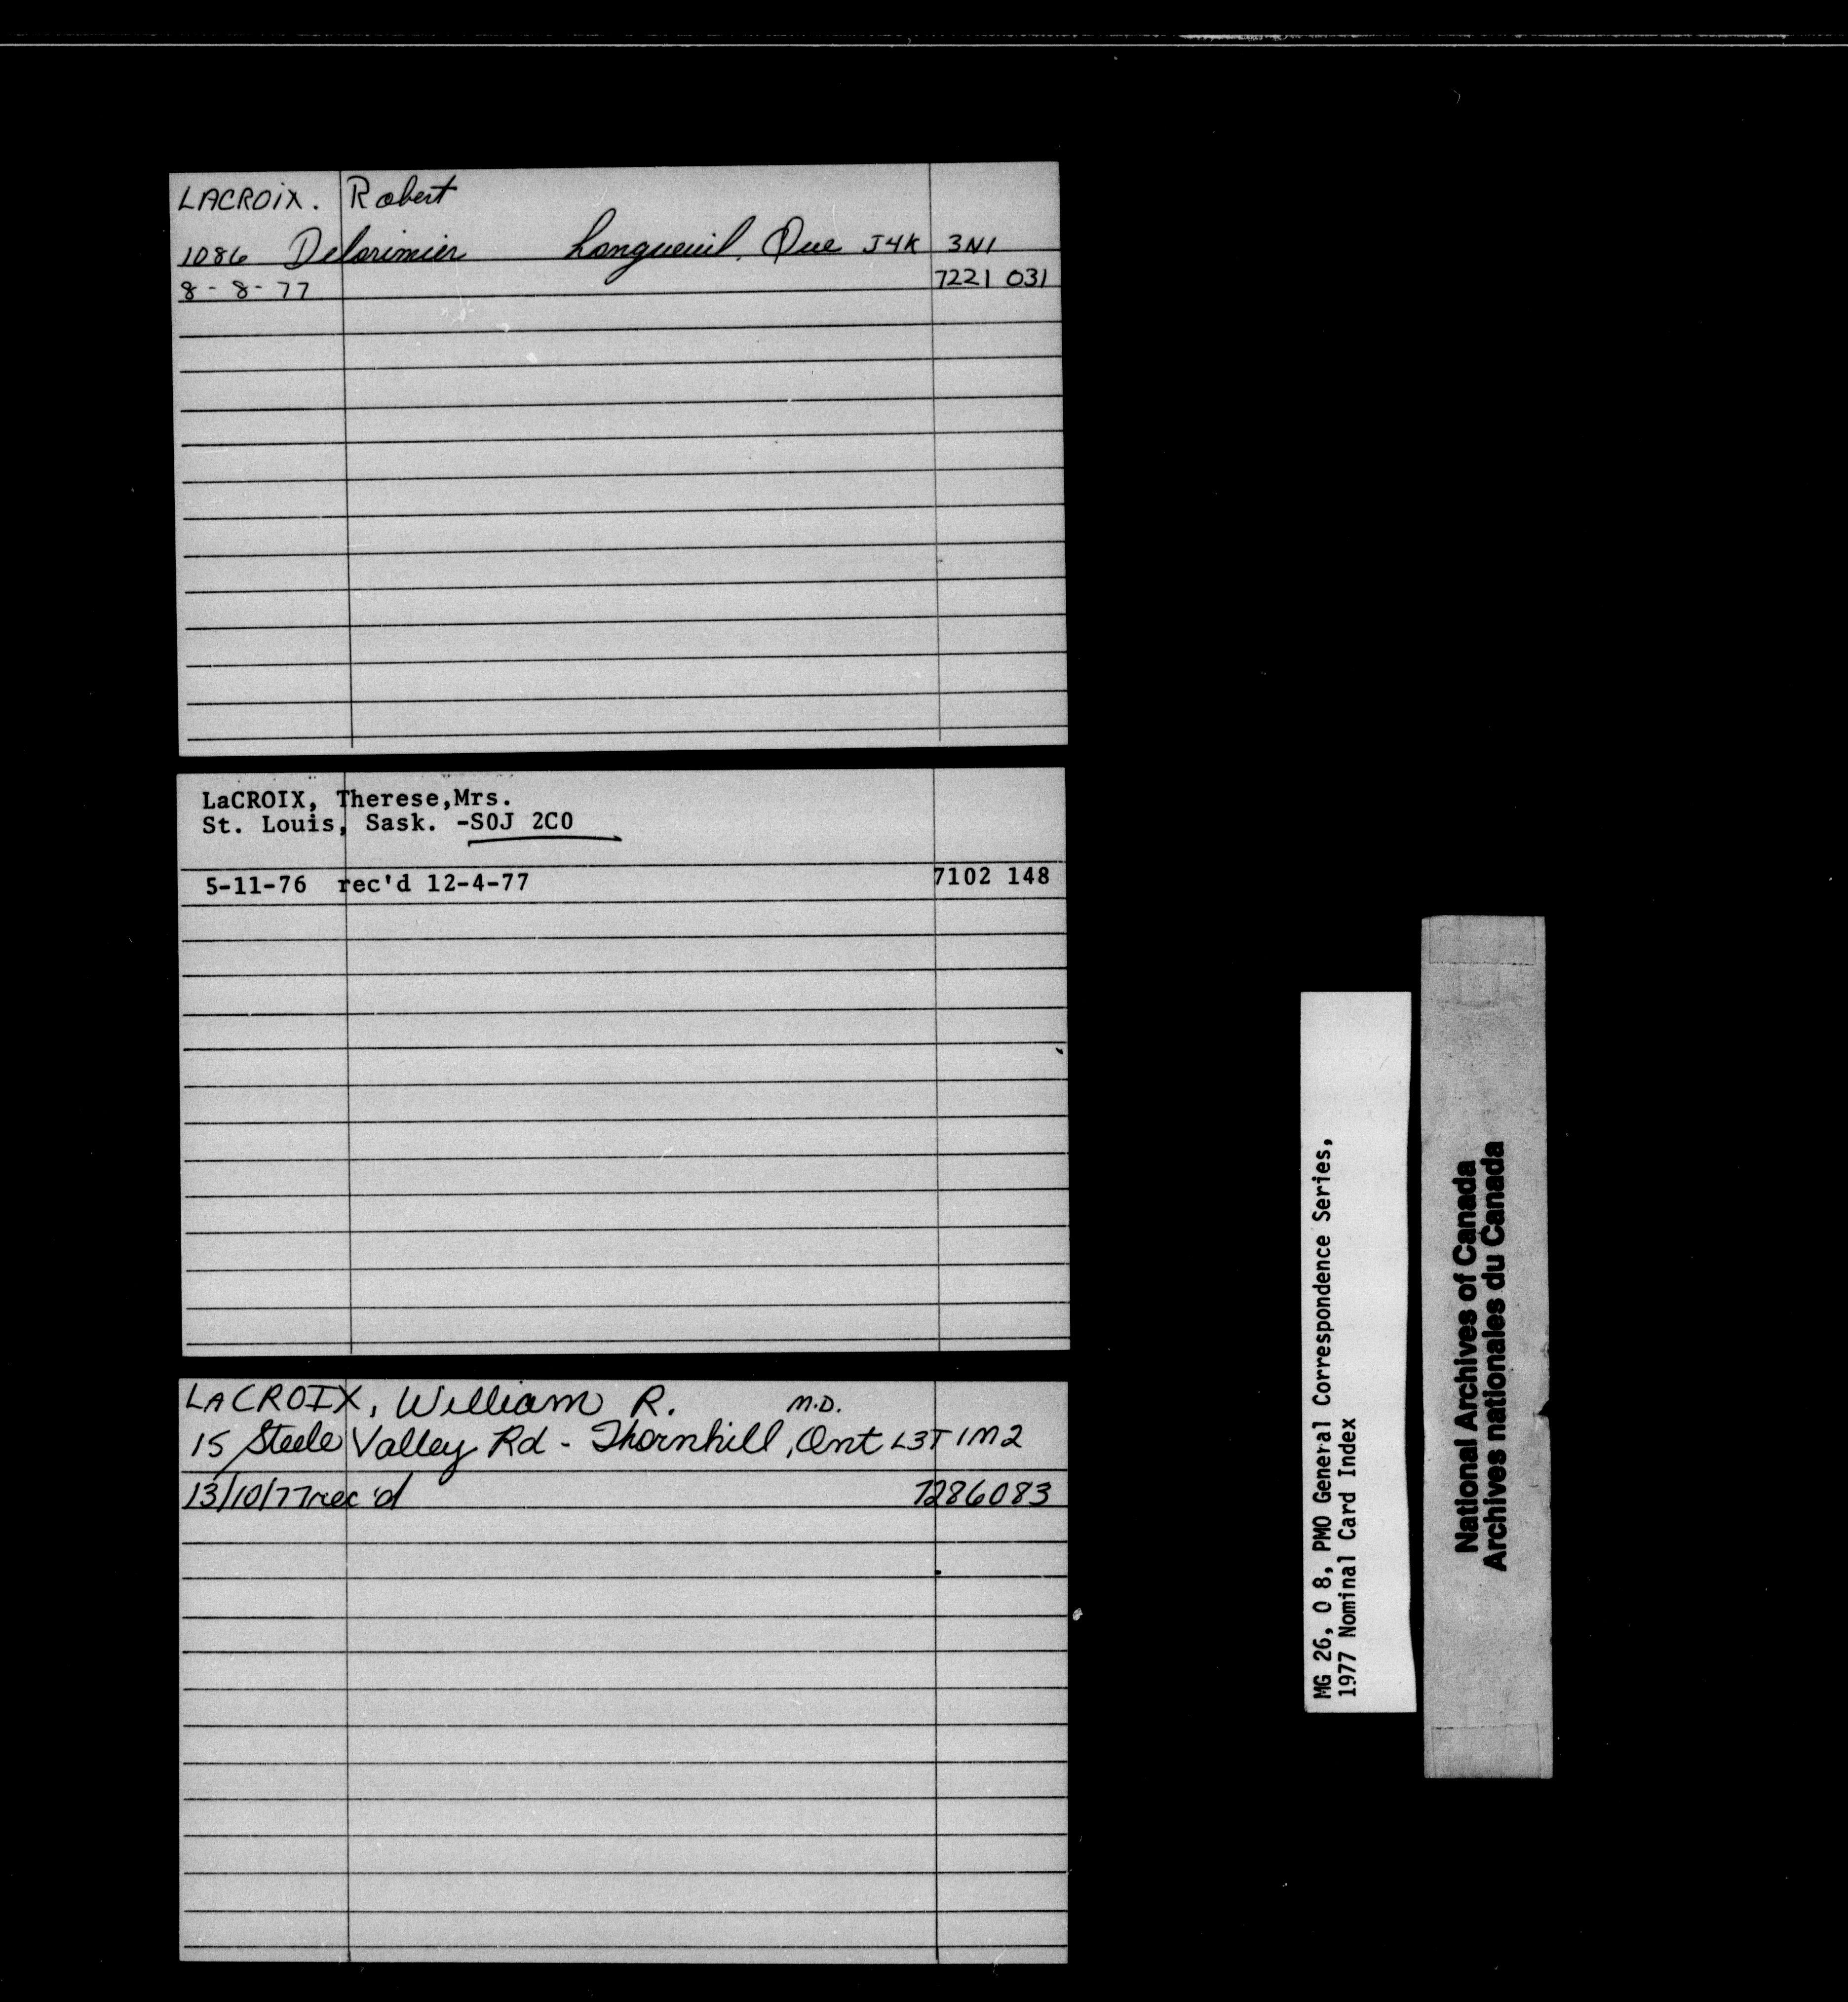 LACROiX. Robert
1086 Delorimier Longueuil, Que J4K 3N1
8-8-77 7221 031
LaCROIX, Therese,Mrs.
St. Louis, Sask. -S0J 2C0
5-11-76 rec'd 12-4-77 7102 148
LACROIX, William R. M.D.
15 Steele Valley Rd - Thornhill, Ont L3T 1M2
13/10/77 rec'd 7286083
MG 26, O 8, PMO General Correspondence Series,
1977 Nominal Card Index
National Archives of Canada
Archives nationales du Canada